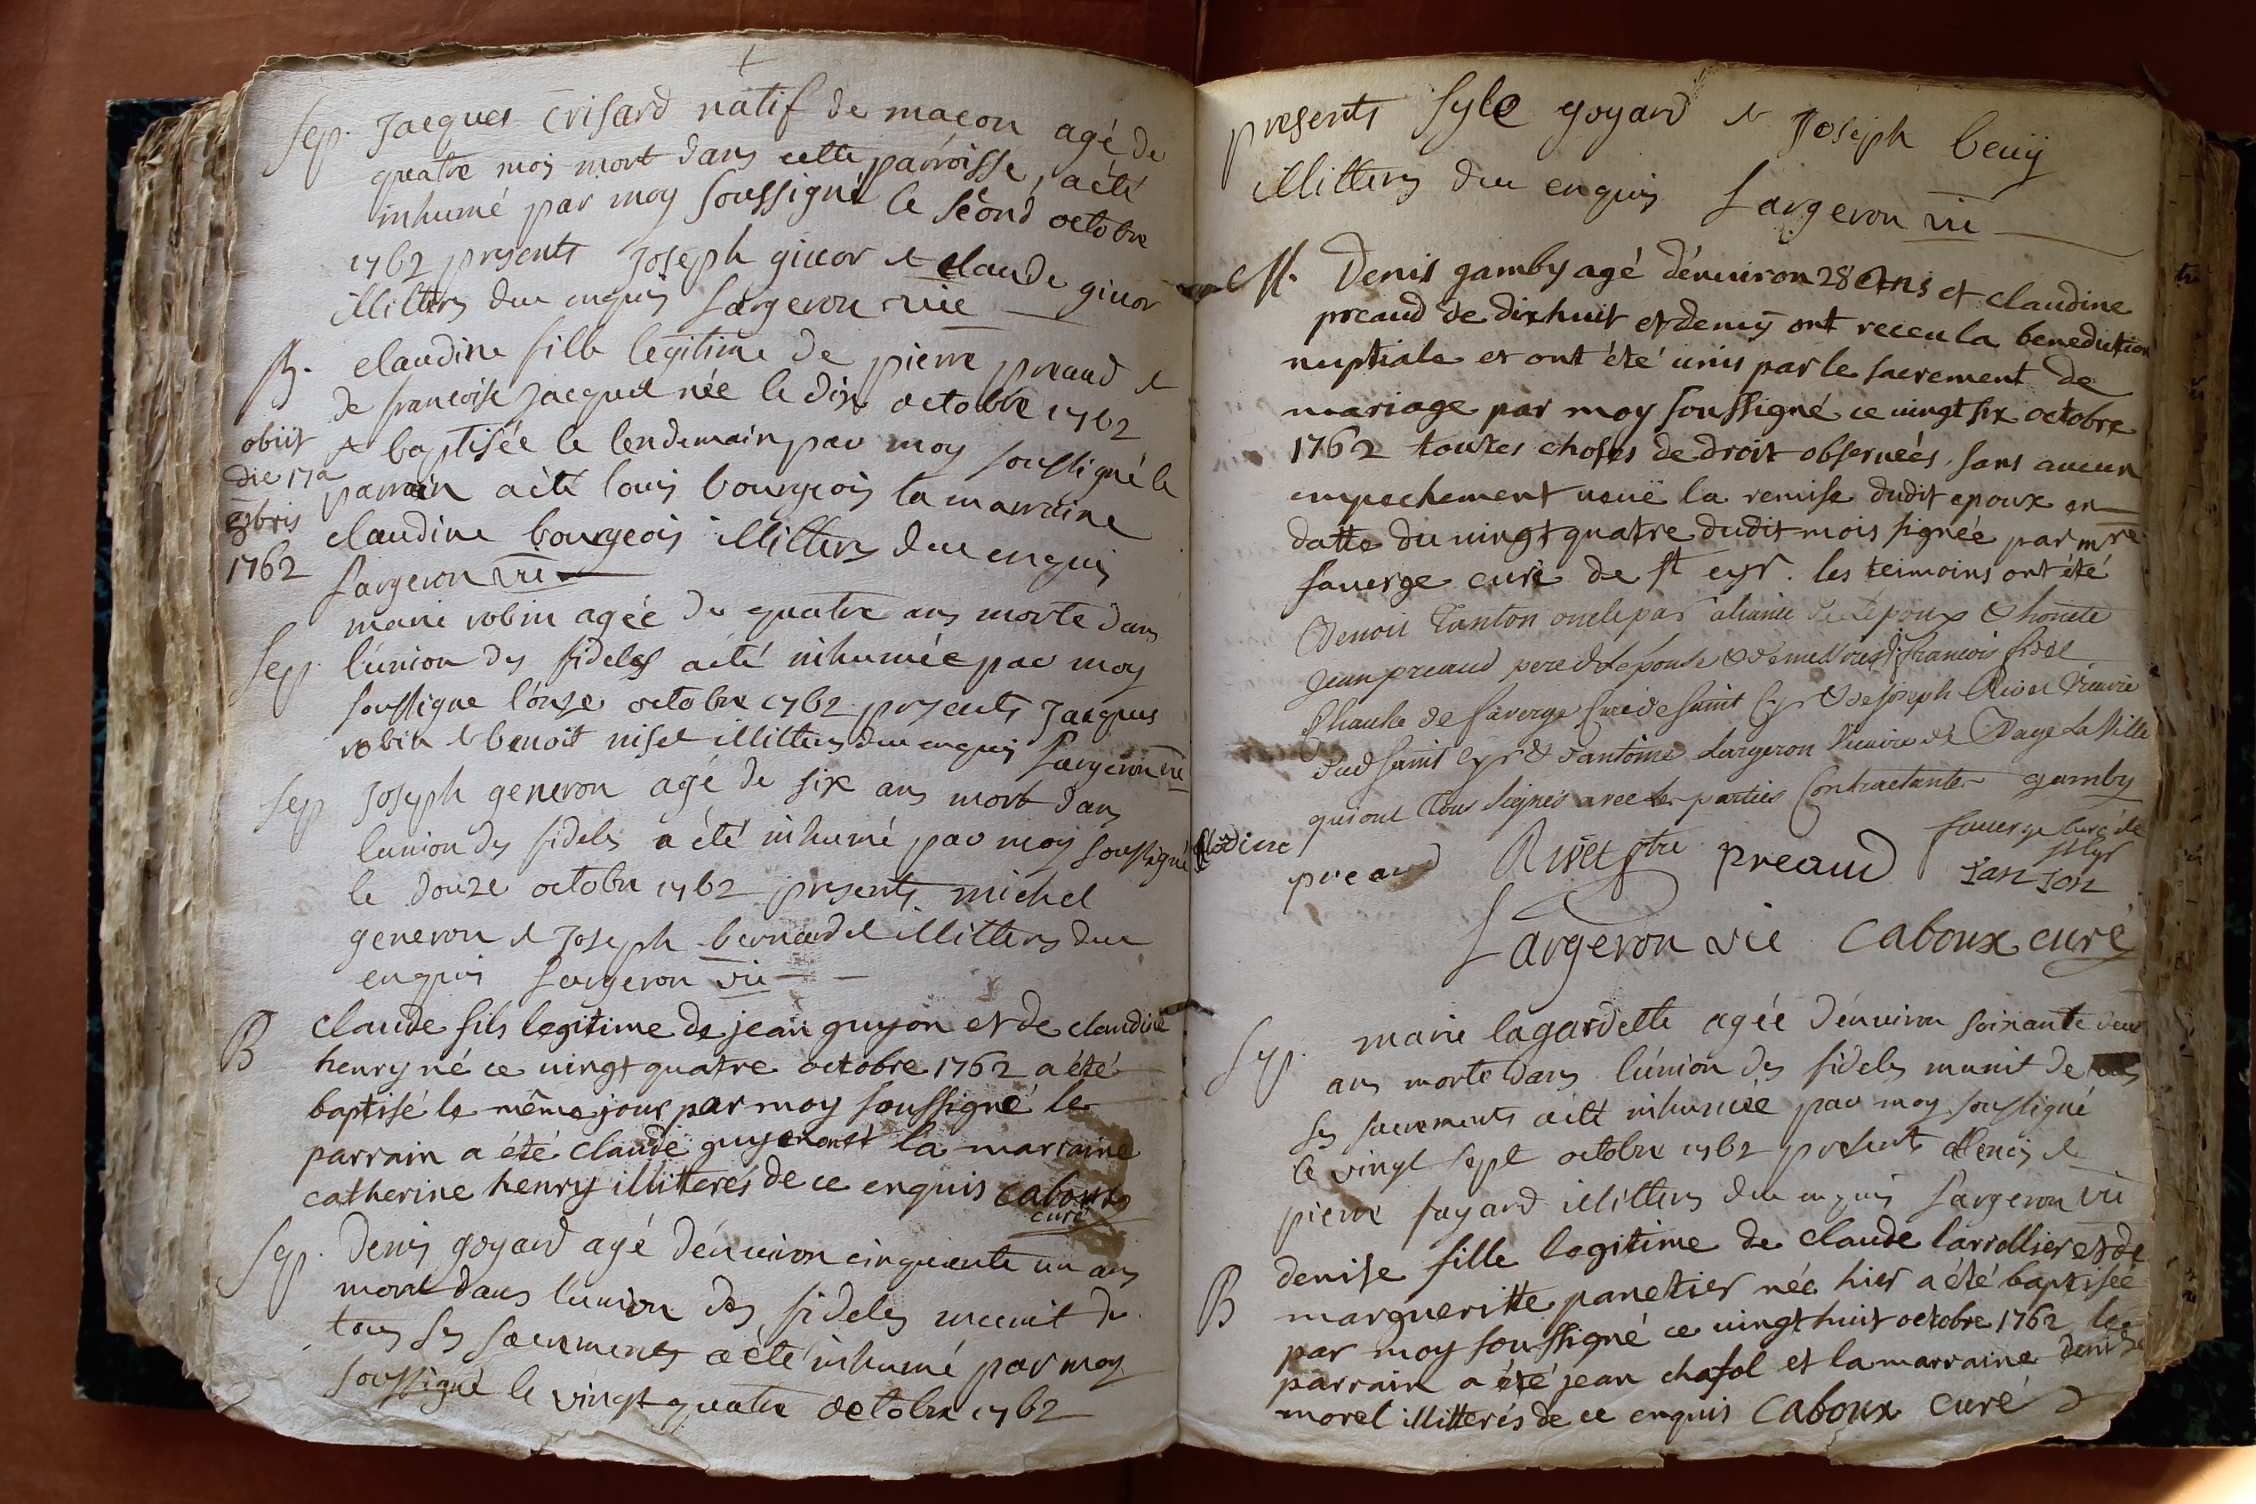 Sep. Jacques Crisard natif de macon agé de
quatre mois mort dans cette parroisse, a été
inhumé par moy soussigné le second octobre
1762 presents Joseph givor et claude givor
illitterés de ce enquis Largeron vic
B. claudine fille legitime de pierre preaud et
de francoise Jacquet née le dix octobre 1762
et baptisée le lendemain par moy soussigné le
parrain a été louis bourgeois la marraine
claudine bourgeois illitterés de ce enquis
Largeron vic
obiit
die 17a
8bris
1762
Sep. marie robin agée de quatre ans morte dans
l'union des fideles a été inhumée par moy
soussigné l'onze octobre 1762 presents Jacques
robin et benoit niset illitterés de ce enquis Largeron vic
Sep Joseph generon agé de six ans mort dans
l'union des fideles a été inhumé par moy soussigné
le douze octobre 1762 presents michel
generon et Joseph bernardet illitterés de ce
enquis Largeron vic
B claude fils legitime de jean guyon et de claudine
henry né ce vingt quatre octobre 1762 a été
baptisé le même jour par moy soussigné le
parrain a été claude et la marraine
catherine henry illitterés de ce enquis caboux
curé
Sep. Denis goyard agé d'environ cinquante un ans
mort dans l'union des fideles munit de
tous ses sacrements a été inhumé par moy
soussigné le vingt quatre octobre 1762
presents goyard et Joseph
illitterés de ce enquis Largeron vic
M. Denis gamby agé d'environ 28 ans et claudine
preaud de dix huit et demy ont receu la benediction
nuptiale et ont été unis par le sacrement de
mariage par moy soussigné ce vingt six octobre
1762 toutes choses de droit observeés. sans aucun
empechement veuë la remise dudit epoux en
datte du vingt quatre dudit mois signée par mre
faverge curé de st cyr. les temoins ont été
Benoit Tanton oncle par aliance de L'epoux & honete
Jean preaud pere de L'epouse & de francois
de faverge Curé de Saint Cyr & de Joseph Rivet Vicaire
dud Saint Cyr & d'antoine Largeron Vicaire de Bagé La Ville
qui ont tous Signés avec les parties Contractantes gamby
clodine preaud Rivet ptre preaud faverge Curé de
st Cyr
Tanton
Largeron vic caboux curé
Sep. marie lagardette agée d'environ soixante deux
ans morte dans l'union des fideles munit de
ses sacrements a été inhumée par moy soussigné
le vingt sept octobre 1762 presents et
pierre fayard illitterés de ce enquis Largeron vic
B denise fille legitime de claude larrollier et de
margueritte panetier née hier a été baptisée
par moy soussigné ce vingt huit octobre 1762 le
parrain a été jean chasol et la marraine denise
morel illitterés de ce enquis caboux curé